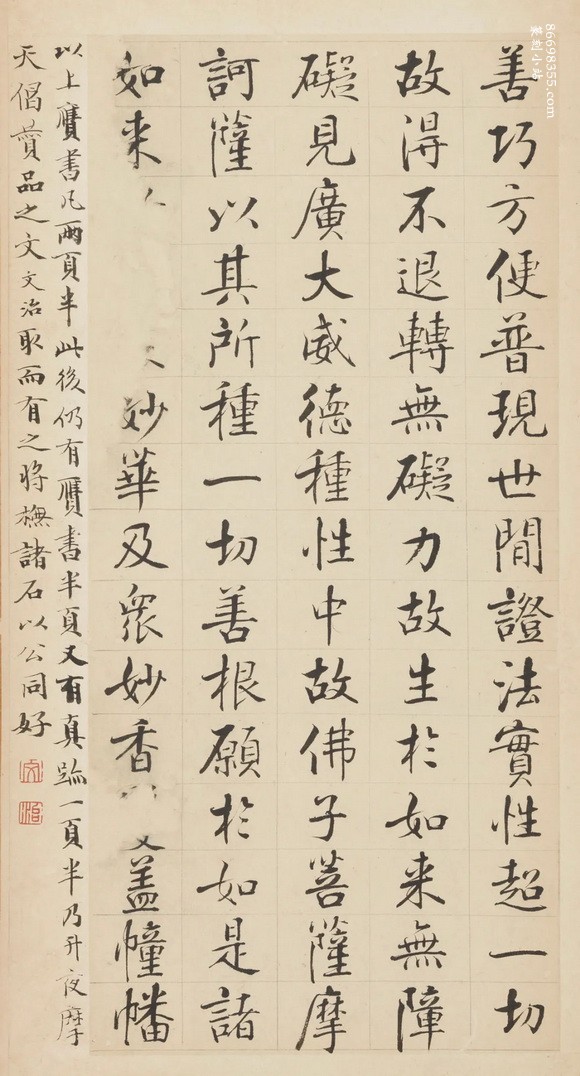 善巧方便普現世閒證法實性超一切
故得不退轉無礙力故生於如来無障
礙見廣大威德種性中故佛子菩薩摩
訶薩以其所種一切善根願於如是諸
如来妙華及眾妙香蓋幢幡
以上贗書凡兩頁半此後仍有贗書半頁又有真跡一頁半乃升夜摩
天偈贊品之文文治取而有之將橅諸石以公同好
86698355.com
篆刻小站